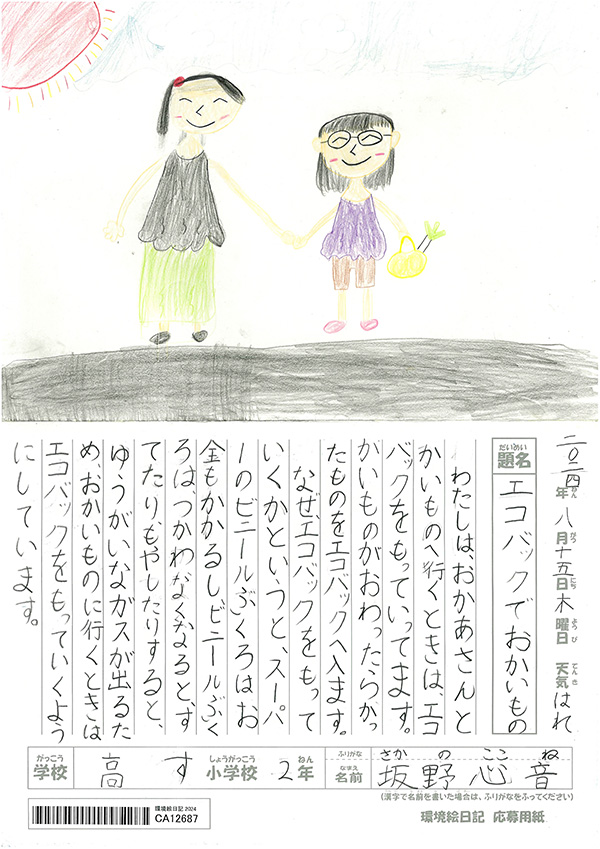 二〇二四年八月十五日木曜日 天気はれ
ねん がつ にち ようび てんき
だいめい
題名 エコバックでおかいもの
わたしは、おかあさんと
かいものへ行くときは、エコ
バックをもっていってます。
かいものがおわったらかっ
たものをエコバックへ入ます。
なぜ、エコバックをもって
いくかというと、スーパ
ーのビニールぶくろはお
金もかかるし、ビニールぶく
ろは、つかわなくなると、す
てたりもやしたりすると、
ゆうがいなガスが出るた
め、おかいものに行くときは
エコバックをもっていくよう
にしています。
がっこう しょうがっこう ねん ふりがな さか の ここ ね
学校 高す 小学校 2年 なまえ 名前 坂野心音
(漢字で名前を書いた場合は、ふりがなをふってください)
環境絵日記 2024
CA12687
環境絵日記 応募用紙